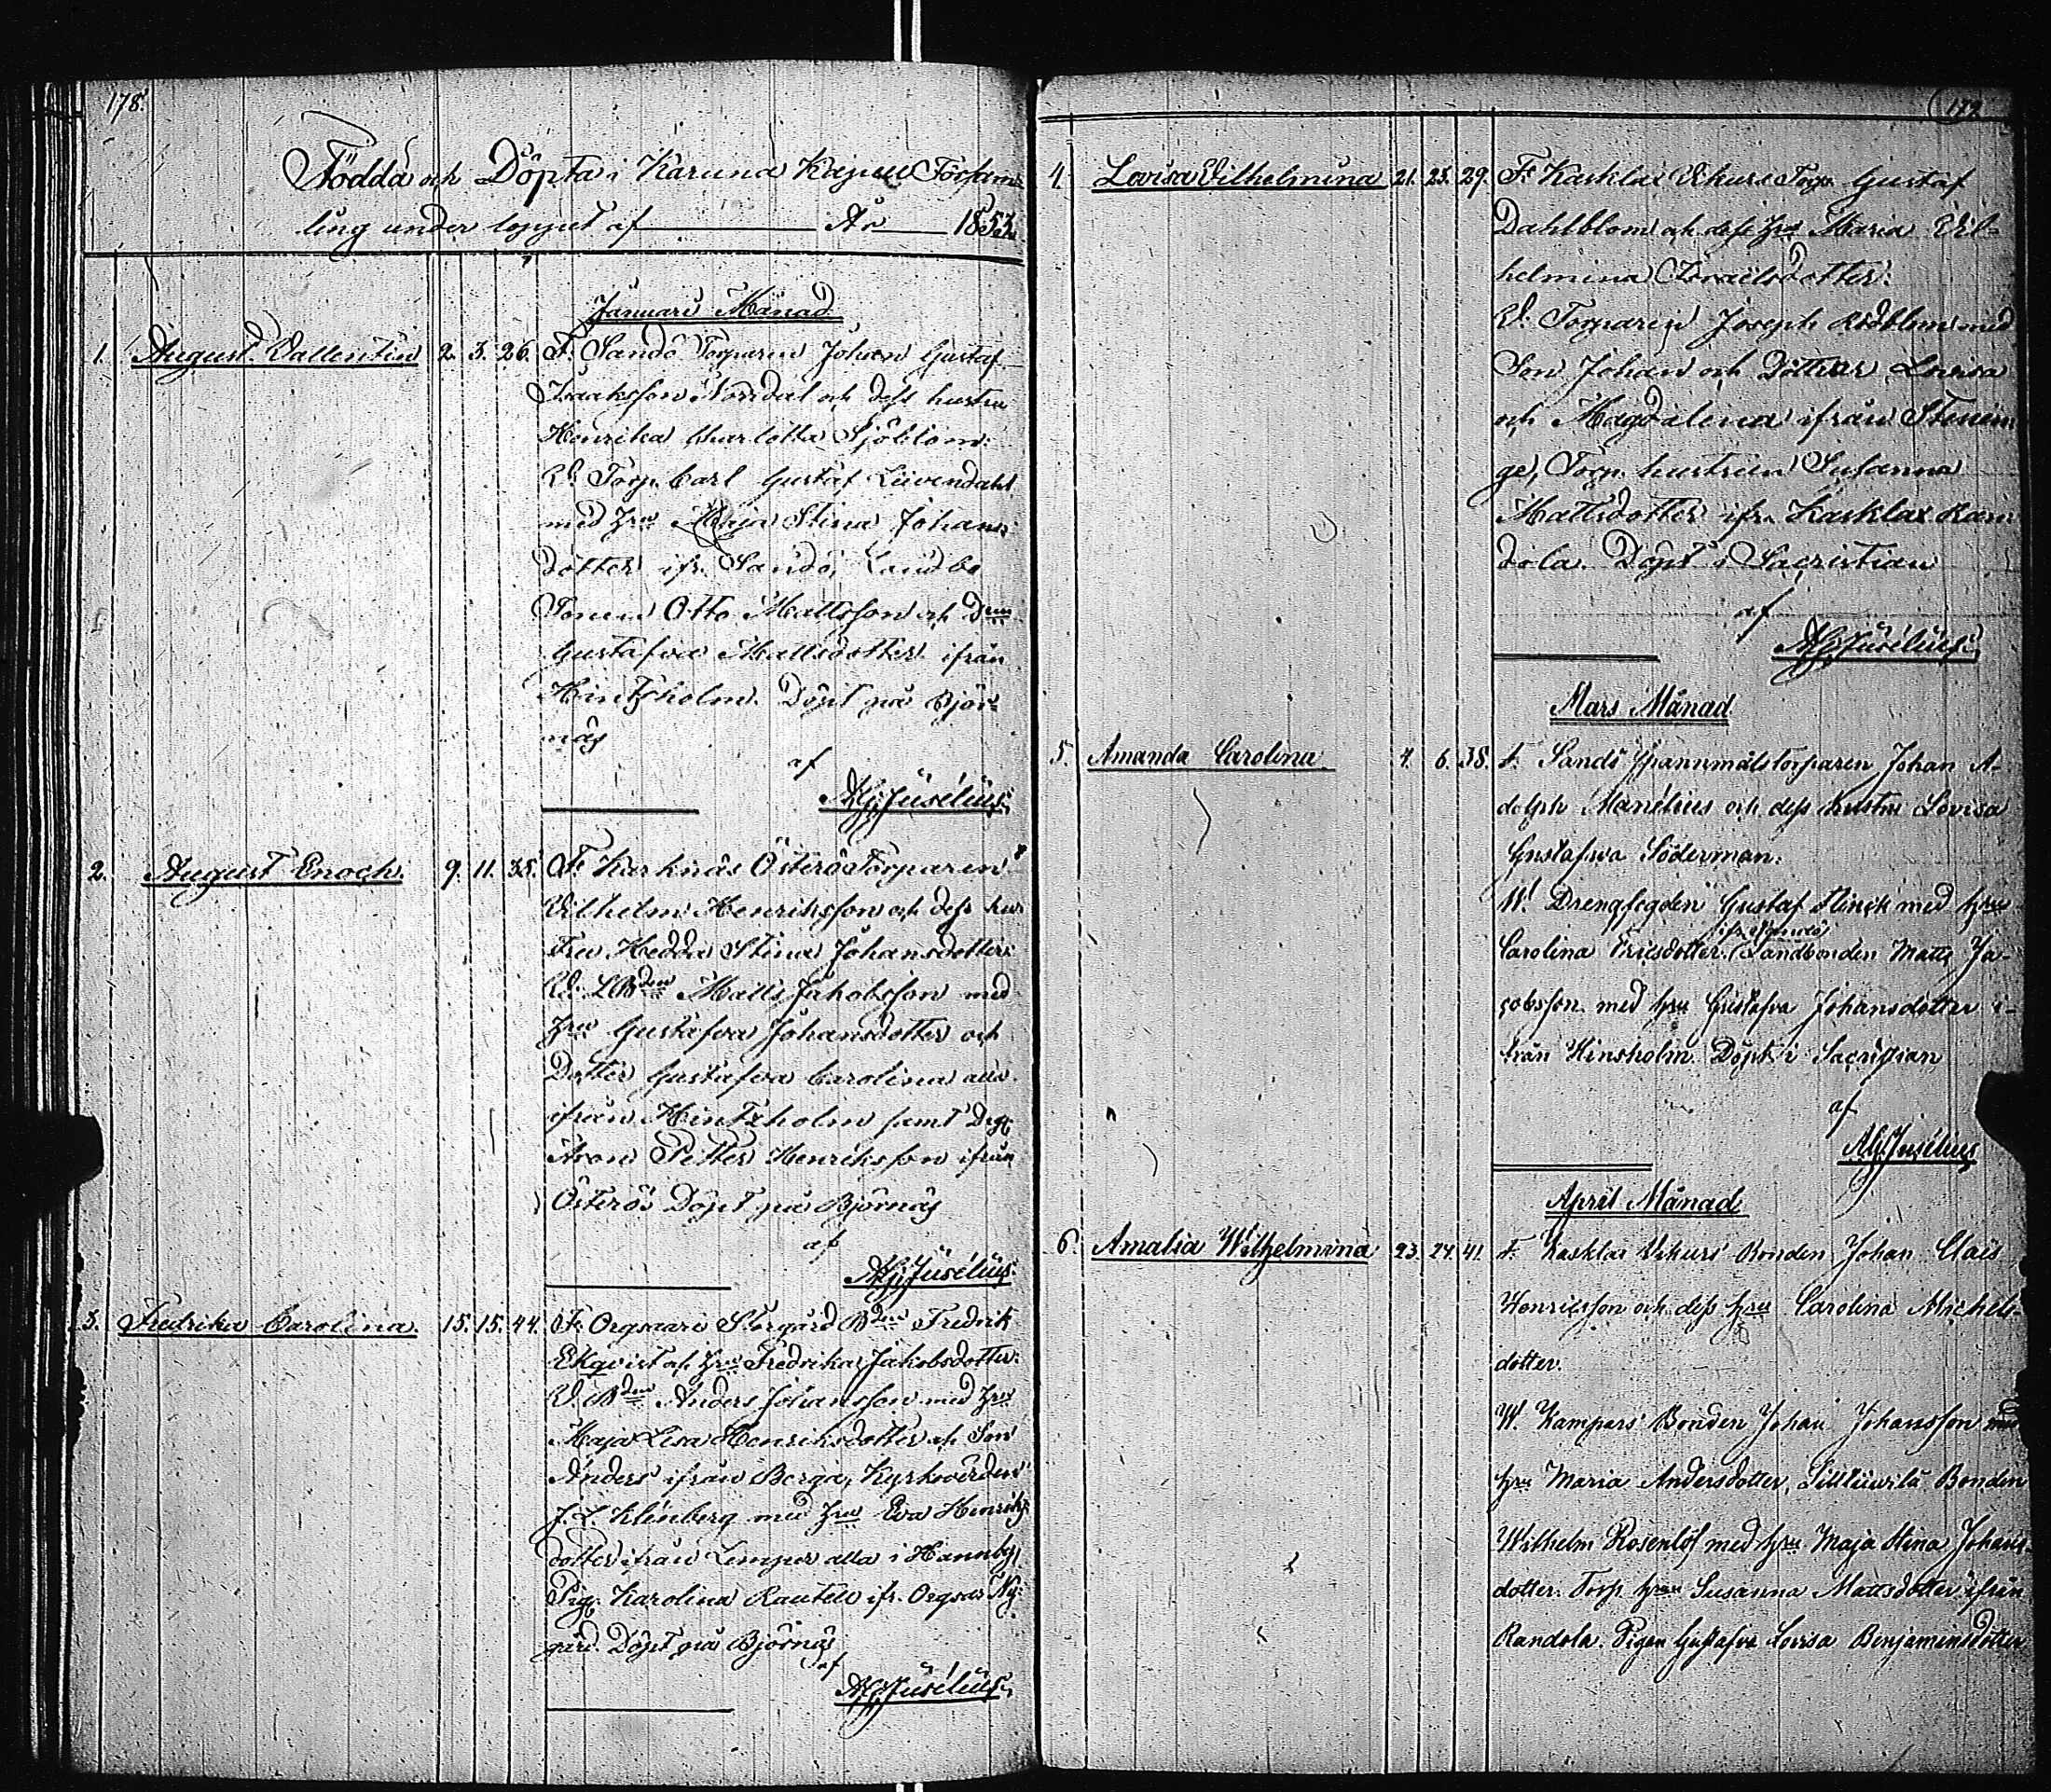 178.
Födda och Döpta i Karuna Kapell Församl
ling under loppet af År 1853.
Januari Månad
1. August Vallentin 2. 3. 26. F. Sandö Torparen Johan Gustaf
Isaaksson Nordal och dess hustru
Henrika Charlotta Sjöblom:
V. Torp. Carl Gustaf Lüvendahl
med Hru Maja Stina Johans
dotter ifr. Sandö, Landbo
Sonen Otto Mattsson och Dem
Gustafva Mattsdotter ifrån
Hintzholm. Döpt på Björ
näs
af
AG Jusélius
2. August Enoch 9. 11. 35. F. Karknäs Österö Torparen
Vilhelm Henriksson och dess hus
tru Hedda Stina Johansdotter:
V. LBden Matts Jakobsson med
Hru Gustafva Johansdotter och
Dotter Gustafva Carolina alla
ifrån Hintzholm samt Dgr.
Aron Petter Henriksson ifrån
Österö Döpt på Björnäs
af
AG Jusélius
3. Fredrika Carolina 15. 15. 44. F. Orgsaari Storgård Bden Fredrik
Ekqvist och Hru Fredrika Jakobsdotter:
V. Bden Anders Johansson med Hru
Maja Lisa Henriksdotter och Son
Anders ifrån Berga, Kyrkvärden
J. L. Klinberg med Hru Eva Henriks
dotter ifrån Lemper alla i Hannby,
Pig. Karolina Rautell ifr. Orgsar Ny
gård. Döpt på Björnäs
af
AG Jusélius
179
4. Lovisa Vilhelmina 21. 25. 29. F. Kasklax Vikurs Torp. Gustaf
Dahlblom och dess Hru Maria Vil-
helmina Israelsdotter:
V. Torparen Joseph Rödblom med
Son Johan och Döttrar Lovisa
och Magdalena ifrån Stenin
ge, Torp. hustrun Susanna
Mattsdotter ifr. Kasklax Ran
dola. Döpt i Sacristian
af
AG Jusélius
Mars Månad
5. Amanda Carolina 4. 6. 38. F. Sandö Spannmålstorparen Johan A-
dolph Manélius och dess hustru Lovisa
Gustafva Söderman.
W. Drengfogden Gustaf Flinck med hru
ifr. Sandö
Carolina Ericsdotter. Landbonden Matts Ja-
cobsson med hru Gustafva Johansdotter i-
från Hinsholm. Döpt i Sacristian
af
AG Jusélius
April Månad
6. Amalia Wilhelmina 23. 24. 41. F. Kasklax Vikurs Bonden Johan Clais
Henricsson och dess hru Carolina Michels-
dotter.
W. Kampars Bonden Johan Johansson med
hru Maria Andersdotter, Bonden
Wilhelm Rosenlöf med hru Maja Stina Johans-
dotter. Torp. hrun Susanna Mattsdotter ifrån
Randola. Pigan Gustafva Lovisa Benjaminsdotter